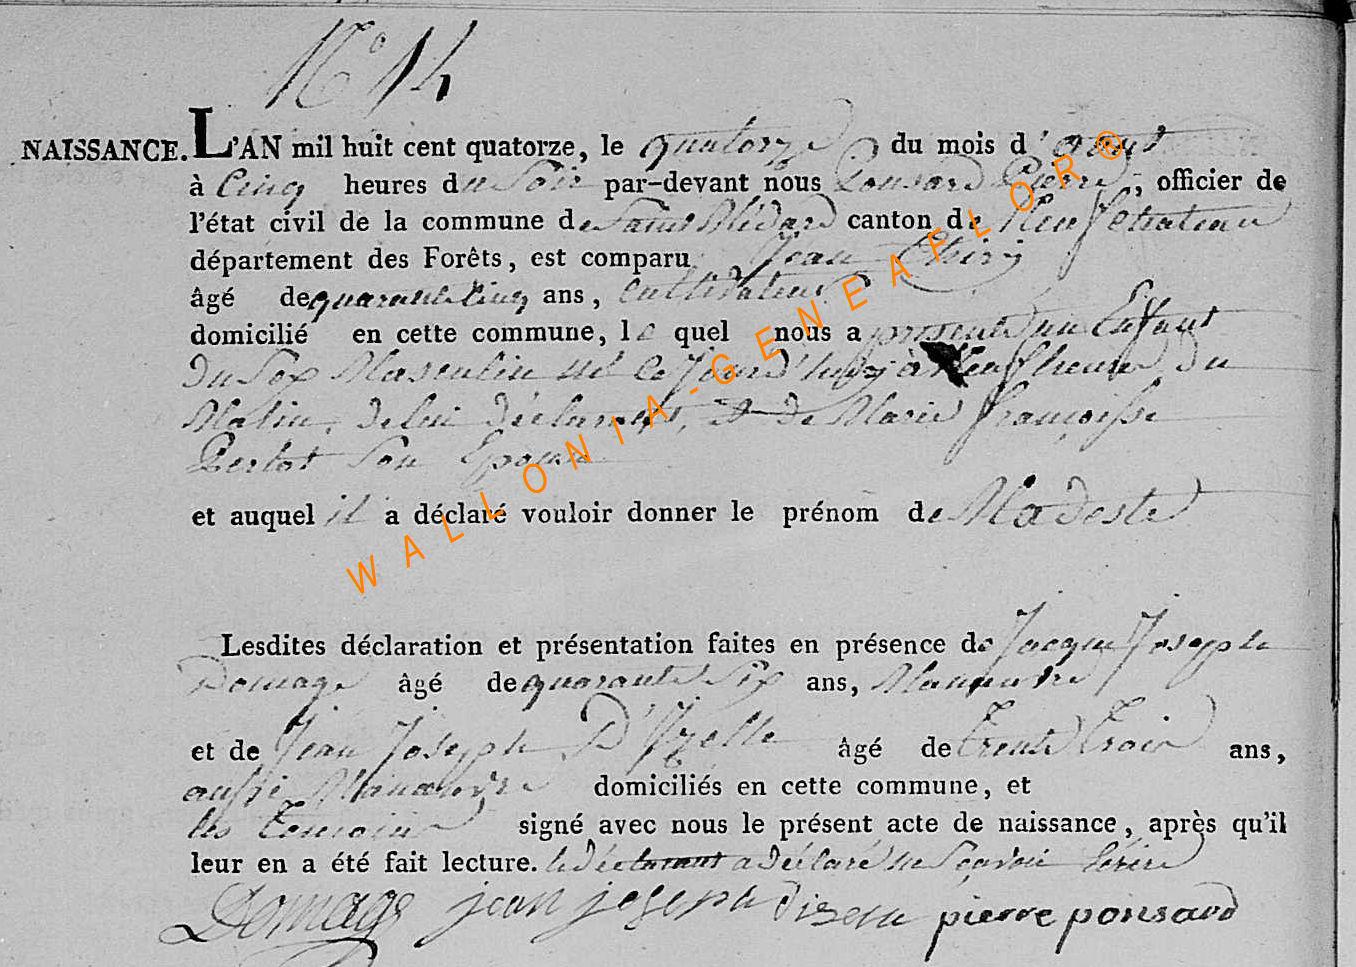 N° 14
NAISSANCE. L'AN mil huit cent quatorze, le quatorze du mois d'aout
à Cinq heures du Soir par-devant nous Ponsard Pierre, officier de
l'état civil de la commune de Saint Médard canton de Neufchateau
département des Forêts, est comparu Jean Thiry
âgé de quarante cinq ans, Cultivateur
domicilié en cette commune, le quel nous a présenté un Enfant
du Sex Masculin né ce Jourd'huy à Neuf heures du
Matin, de lui déclarant, et de Marie françoisse
Perlot Son Epouse
et auquel il a déclaré vouloir donner le prénom de Modeste
Lesdites déclaration et présentation faites en présence de Jacque Joseph
Domage âgé de quarante Six ans, Manœuvre
et de Jean Joseph D'Izelle âgé de trente trois ans,
aussi Manœuvre domiciliés en cette commune, et
les temoins signé avec nous le présent acte de naissance, après qu'il
leur en a été fait lecture. le déclarant a déclaré ne Sçavoir
Domage jean joseph pierre ponsard
WALLONIA-GENEAFLOR®